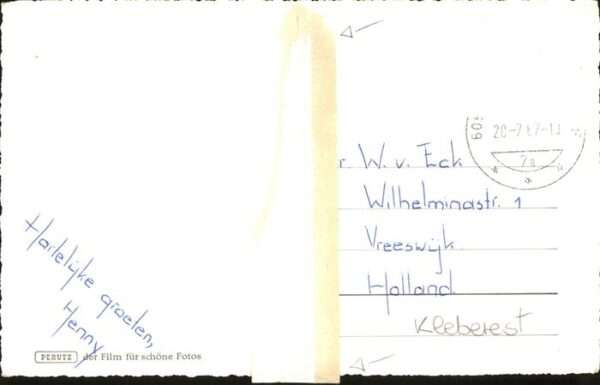 Hartelijke groeten,
Henny
PERUTZ der Film für schöne Fotos
20-7
7a
r. W. v. Eck
Wilhelminastr. 1
Vreeswijk
Holland
Kleberest